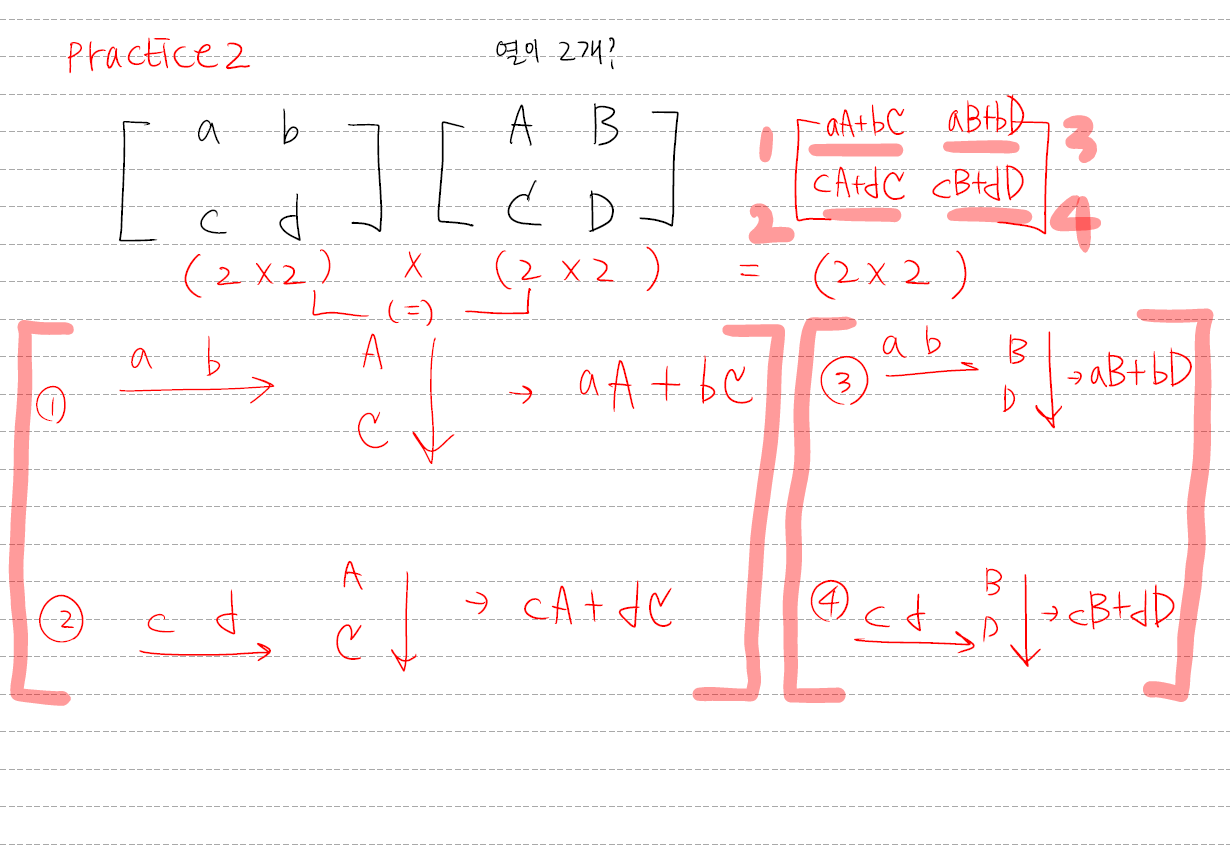 practice2
열이 2개?
a b A B aA+bC aB+bD
1 3
c d C D cA+dC cB+dD
2 4
(2×2) × (2×2) = (2×2)
(=)
① a b A C → aA+bC
② c d A C → cA+dC
③ a b B D → aB+bD
④ c d B D → cB+dD